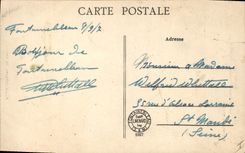 CARTE POSTALE
Fontainebleau 7/9/2
Adresse
Bonjour de
Fontainebleau
Monsieur et Madame
Wilfrid
35 rue d'Alsace Lorraine
St Mandé
(Seine)